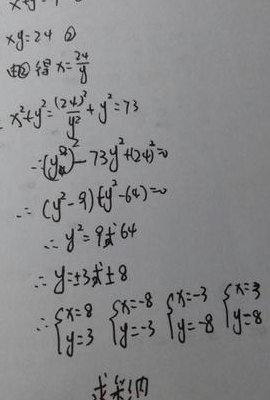 xy=24 ②
由②得 x=24/y
x²+y²=(24)²/y²+y²=73
∴(y²)²-73y²+(24)²=0
∴(y²-9)(y²-64)=0
∴y²=9或64
∴y=±3或±8
∴{x=8 y=3 {x=-8 y=-3 {x=-3 y=-8 {x=3 y=8
求采纳